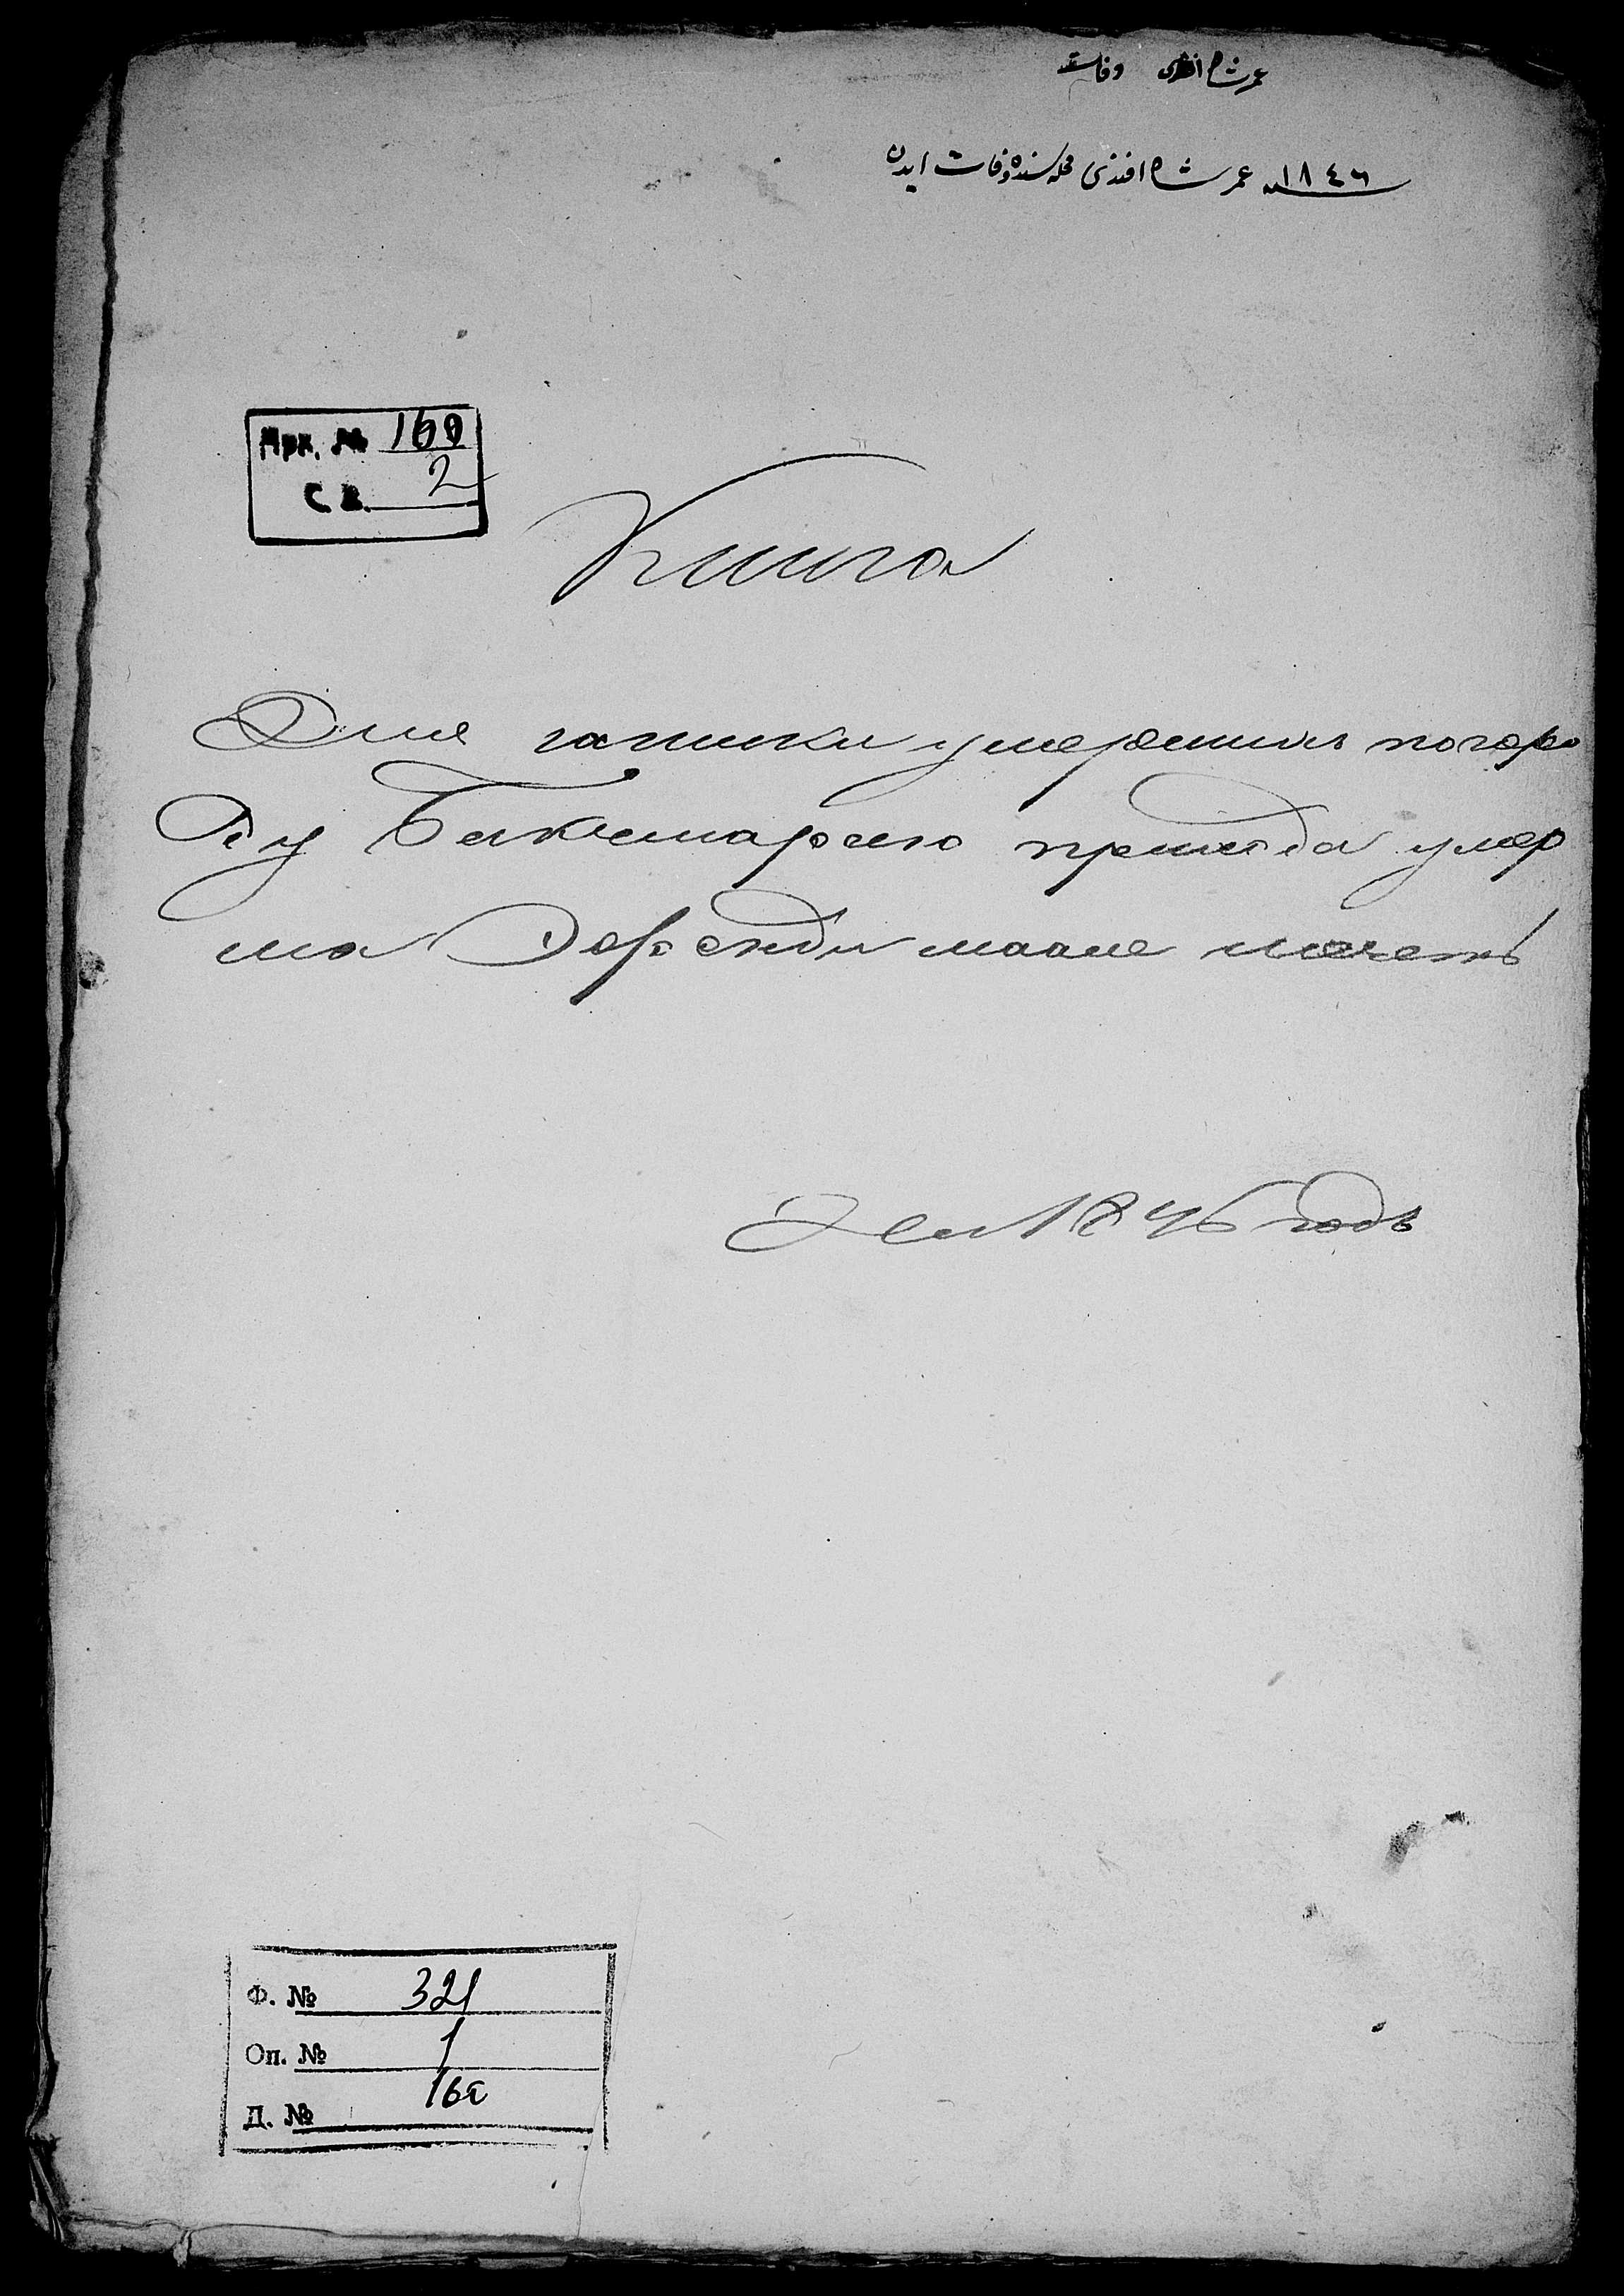 عمر شاه افندی وفات
١٨٤٦ عمر شاه افندی محله سنده وفات ایدن
Арх. № 160
С.В. 2
Книга
Для записки умершихъ погоро
ду Бахчисараю прихода умер
ша Эфенди маале мечеть
Для 1846 годъ
Ф. № 321
Оп. № 1
Д. № 16а